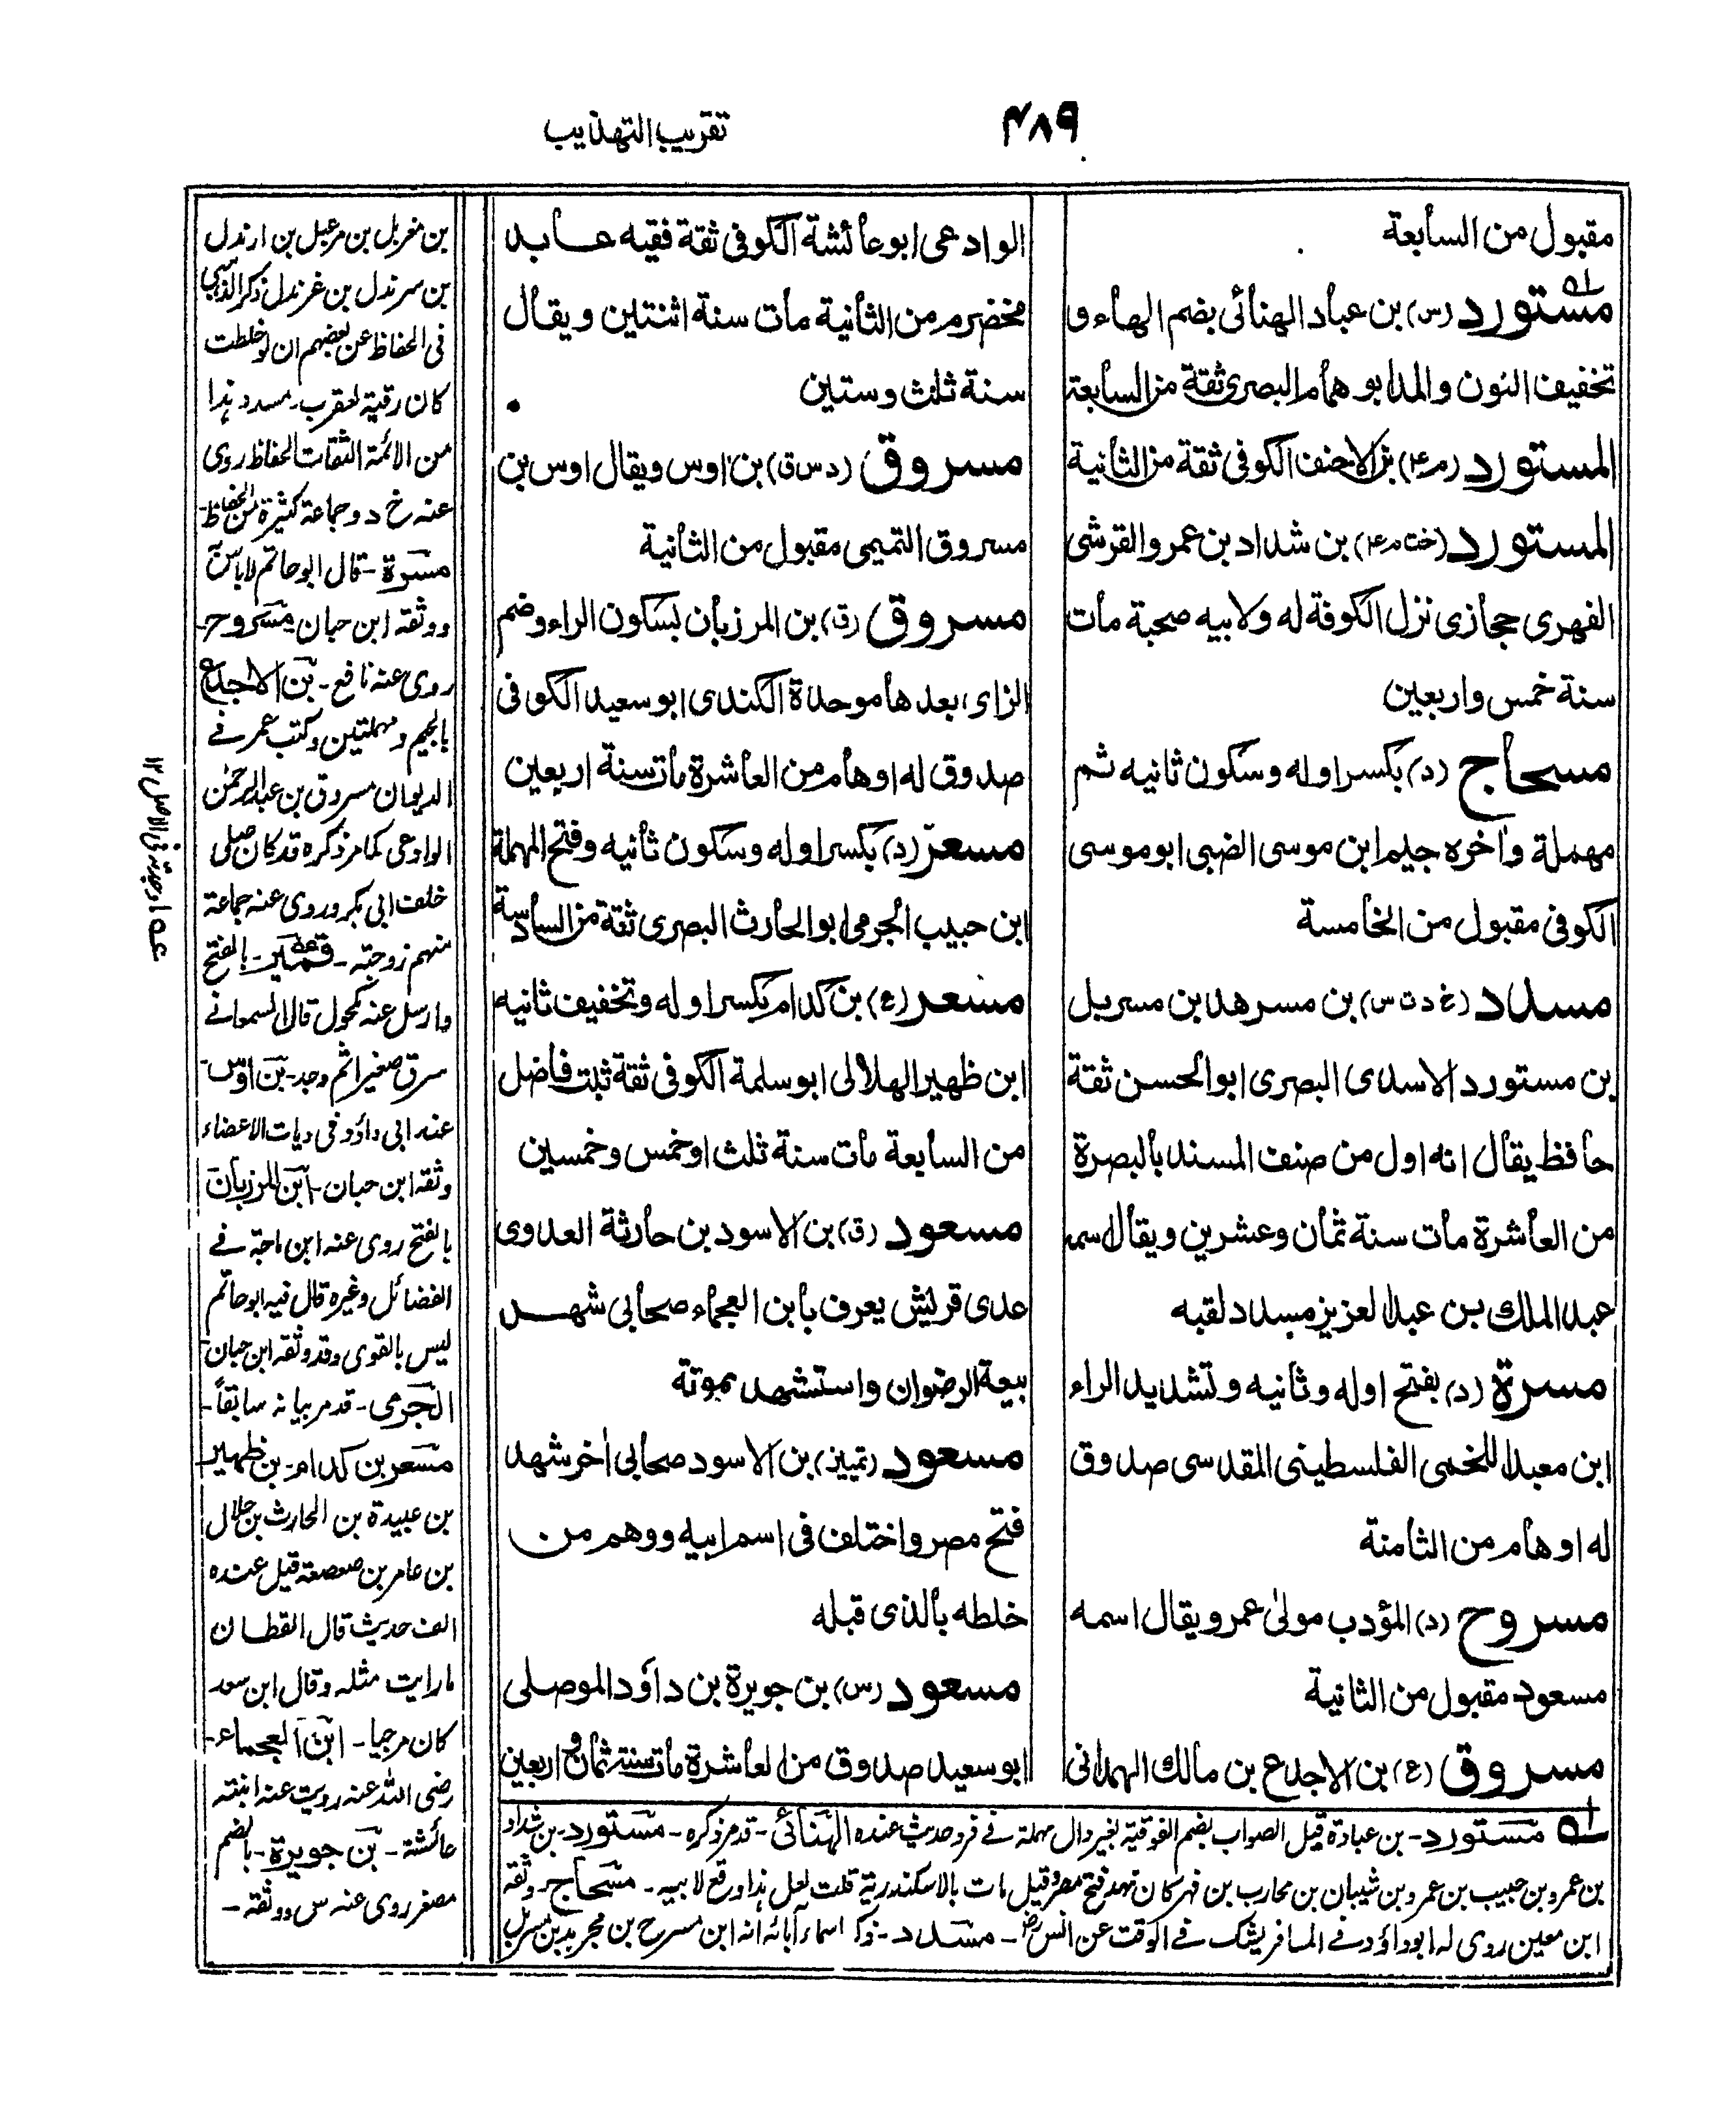 ٤٨٩
تقريب التهذيب
مقبول من السابعة
مستورد (س) بن عباد الهنائى بضم الهاء و
تخفيف النون والمد ابو همام البصرى ثقة من السابعة
المستورد (م ٤) بن الاحنف الكوفى ثقة من الثانية
المستورد (خت م ٤) بن شداد بن عمرو القرشى
الفهرى حجازى نزل الكوفة له ولابيه صحبة مات
سنة خمس واربعين
مسحاج (د) بكسر اوله وسكون ثانيه ثم
مهملة واخره جيم ابن موسى الضبى ابو موسى
الكوفى مقبول من الخامسة
مسدد (خ د ت س) بن مسرهد بن مسربل
بن مستورد الاسدى البصرى ابو الحسن ثقة
حافظ يقال انه اول من صنف المسند بالبصرة
من العاشرة مات سنة ثمان وعشرين ويقال اسمه
عبد الملك بن عبد العزيز مسدد لقبه
مسرة (د) بفتح اوله وثانيه وتشديد الراء
ابن معبد اللخمى الفلسطينى المقدسى صدوق
له اوهام من الثامنة
مسروح (د) المؤدب مولى عمر ويقال اسمه
مسعود مقبول من الثانية
مسروق (ع) بن الاجدع بن مالك الهمدانى
الوادعى ابو عائشة الكوفى ثقة فقيه عابد
مخضرم من الثانية مات سنة اثنتين ويقال
سنة ثلث وستين
مسروق (د س ق) بن اوس ويقال اوس بن
مسروق التميمى مقبول من الثانية
مسروق (ق) بن المرزبان بسكون الراء وضم
الزاى بعدها موحدة الكندى ابو سعيد الكوفى
صدوق له اوهام من العاشرة مات سنة اربعين
مسعر (د) بكسر اوله وسكون ثانيه وفتح المهملة
ابن حبيب الجرمى ابو الحارث البصرى ثقة من السادسة
مسعر (ع) بن كدام بكسر اوله وتخفيف ثانيه
ابن ظهير الهلالى ابو سلمة الكوفى ثقة ثبت فاضل
من السابعة مات سنة ثلث او خمس وخمسين
مسعود (ق) بن الاسود بن حارثة العدوى
عدى قريش يعرف بابن العجماء صحابى شهد
بيعة الرضوان واستشهد بموتة
مسعود (تمييز) بن الاسود صحابى اخر شهد
فتح مصر واختلف فى اسم ابيه ووهم من
خلطه بالذى قبله
مسعود (س) بن جويرة بن داؤد الموصلى
ابو سعيد صدوق من العاشرة مات سنة ثمان و اربعين
مستورد - بن عبادة قيل الصواب بضم الفوقية بغير دال مهملة فے فرد حديث عنده الهنائى - قد مر ذكره - مستورد - بن شداد
بن عمرو بن حبيب بن عمرو بن شيبان بن محارب بن فهر كان شهد فتح مصر وقيل مات بالاسكندرية قلت لعل هذا وقع لابيه - مسحاج - وثقه
ابن معين روى له ابو داؤد فے المسافر يشك فے الوقت عن انس رض - مسدد - ذكر اسماء آبائه انه ابن مسرح بن مجرهد بن مسربل
بن مغربل بن مرعبل بن ارندل
بن سرندل بن غرندل ذكر الذهبى
فى الحفاظ عن بعضهم ان لو خلطت
كان رقية لعقرب - مسدد هذا
من الائمة الثقات الحفاظ روى
عنه خ د وجماعة كثيرة من الحفاظ -
مسرة - قال ابو حاتم لا باس به
ووثقه ابن حبان - مسروح -
روى عنه نافع - بن الاجدع
بالجيم ومهملتين وكتب عمر فے
الديوان مسروق بن عبد الرحمن
الوادعى كما مر ذكره قد كان صلى
خلف ابى بكر وروى عنه جماعة
منهم زوجته - قمير - بالفتح
وارسل عنه مكحول قال السمعانے
سرق صغيرا ثم وجد - بن اوس -
عنه ابى داؤد فى ديات الاعضاء
وثقه ابن حبان - ابن المرزبان
بالفتح روى عنه ابن ماجة فے
الفضائل وغيره قال فيه ابو حاتم
ليس بالقوى وقد وثقه ابن حبان -
الجرمى - قد مر بيانه سابقاً -
مسعر بن كدام - بن ظهير
بن عبيدة بن الحارث بن هلال
بن عامر بن صعصعة قيل عنده
الف حديث قال القطان
ما رايت مثله وقال ابن سعد
كان مرجيا - ابن العجماء -
رضى الله عنه رويت عنه ابنته
عائشة - بن جويرة - بالضم
مصغر روى عنه س ووثقه -